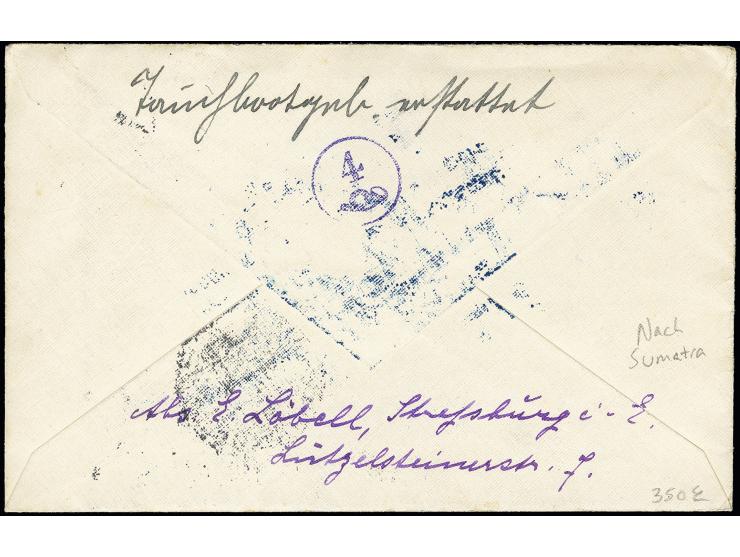 Tauchbootgeb. erstattet
4
B
Nach
Sumatra
Abs E. Löbell, Straßburg i. E.
Lützelsteinerstr. 7.
350£